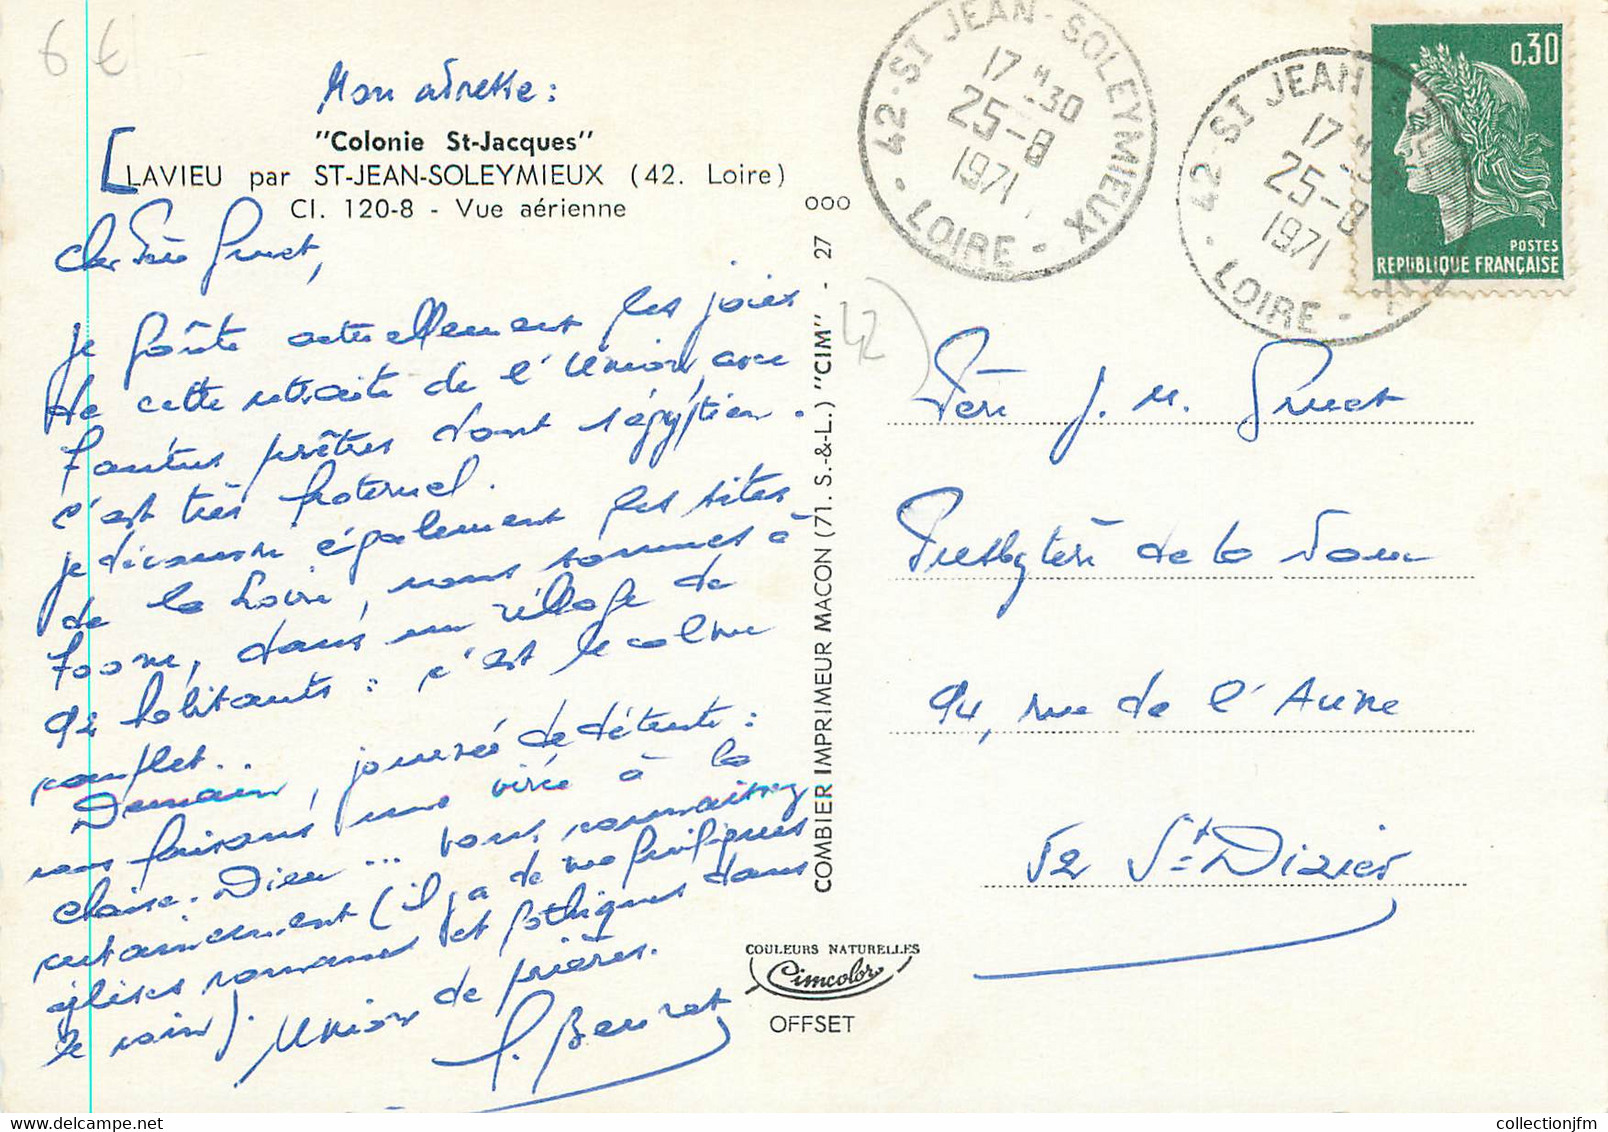 6 €
Mon adresse :
"Colonie St-Jacques"
LAVIEU par ST-JEAN-SOLEYMIEUX (42. Loire)
Cl. 120-8 - Vue aérienne
Cher Père Gruet,
je goûte actuellement les joies
de cette retraite de l'Union, avec
7 autres prêtres dont 1 égyptien.
C'est très fraternel.
je découvre également les sites
de la Loire, nous sommes à
700 m, dans un village de
92 habitants : c'est le calme
complet..
Demain, journée de détente :
nous faisons une virée à la
Chaise-Dieu ... vous connaissez
certainement (il y a de magnifiques
églises romanes et gothiques dans
le coin). Union de prières.
COMBIER IMPRIMEUR MACON (71. S.-&-L.) "CIM" - 27
ooo
COULEURS NATURELLES
Cimcolor
OFFSET
42-ST JEAN-SOLEYMIEUX
17 H.30
25-8
1971
- LOIRE -
42-ST JEAN
17 H
25-8
1971
- LOIRE -
0,30
POSTES
REPUBLIQUE FRANÇAISE
42
Père J. M. Gruet
Presbytère de la Noue
94, rue de l'Aune
52 St Dizier
collectionjfm